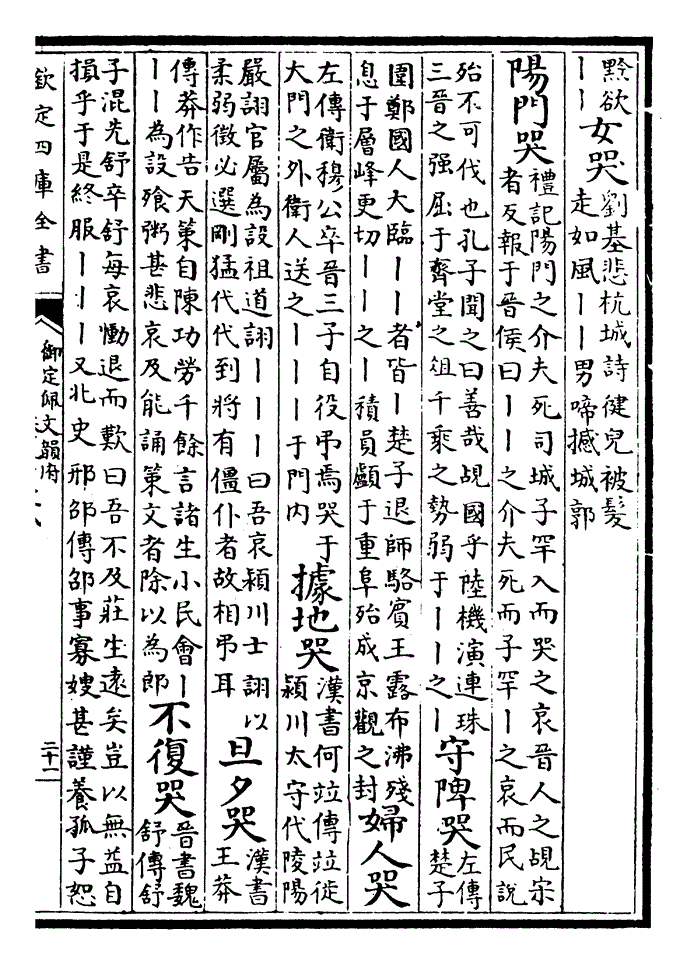 黥欲
——
女哭
劉基悲杭城詩健兒被髪
走如風——男啼撼城郭
陽門哭
禮記陽門之介夫死司城子罕入而哭之哀晉人之覘宋
者反報于晉侯曰——之介夫死而子罕—之哀而民說
殆不可伐也孔子聞之曰善哉覘國乎陸機演連珠
三晉之强屈于齊堂之俎千乘之勢弱于——之—
守陴哭
左傳
楚子
圍鄭國人大臨——者皆—楚子退師駱賓王露布沸殘
息于層峰更切——之—積員顱于重阜殆成京觀之封
婦人哭
左傳衛穆公卒晉三子自役弔焉哭于
大門之外衛人送之———于門内
據地哭
漢書何竝傳竝徙
潁川太守代陵陽
嚴詡官屬為設祖道詡———曰吾哀潁川士詡以
柔弱徵必選剛猛代代到將有僵仆者故相弔耳
旦夕哭
漢書
王莽
傳莽作告天策自陳功勞千餘言諸生小民會—
——為設飱粥甚悲哀及能誦策文者除以為郎
不復哭
晉書魏
舒傳舒
子混先舒卒舒每哀慟退而歎曰吾不及莊生遠矣豈以無益自
損乎于是終服———又北史邢邵傳邵事寡嫂甚謹養孤子恕
欽定四庫全書
御定佩文韻府
二十一